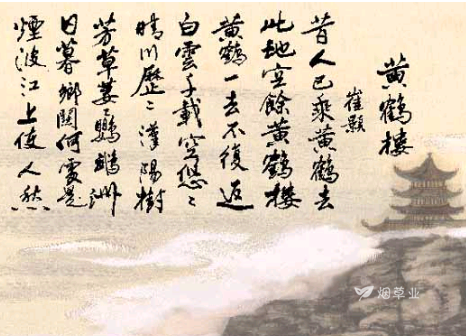 黄鹤楼
崔颢
昔人已乘黄鹤去
此地空餘黄鹤楼
黄鹤一去不復返
白雲千載空悠〻
晴川歷〻漢陽樹
芳草萋〻鸚鵡洲
日暮鄉関何處是
煙波江上使人愁
烟草业